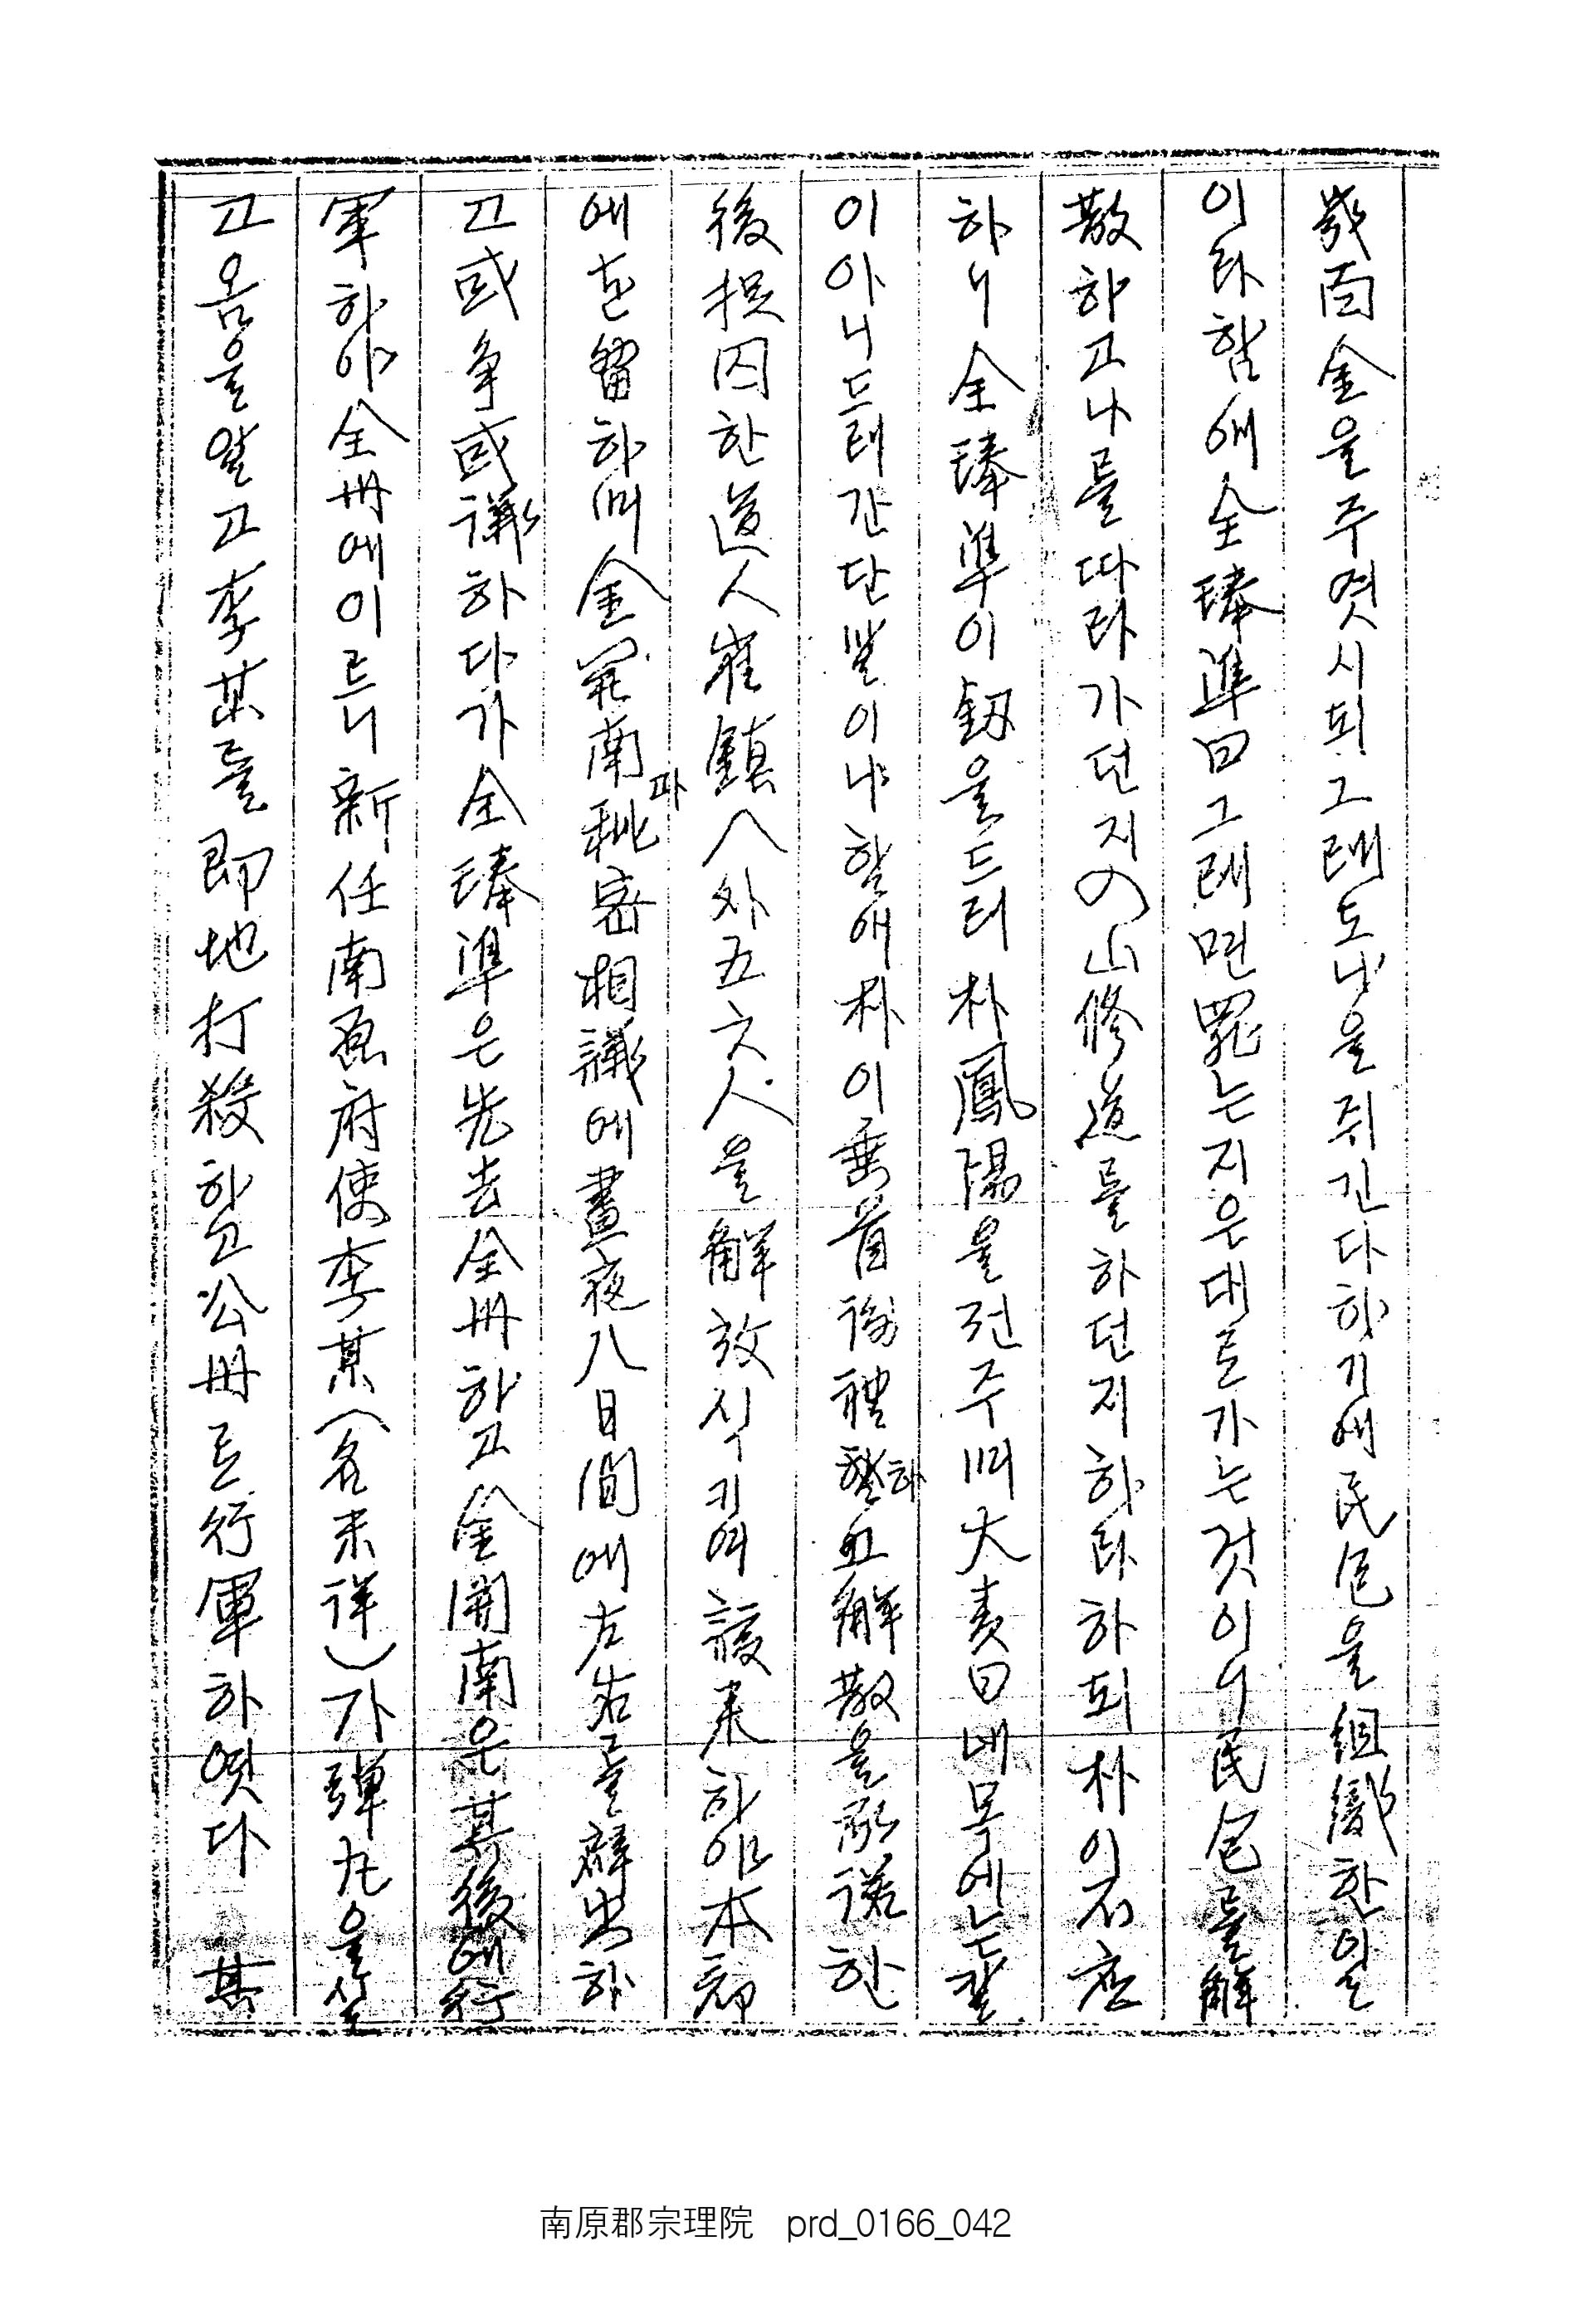 백金을주엿시되그래도나을쥐긴다하기에民包을組織한일
이라함애全琫準曰그래면罪는지은대로가는것이니民包를解
散하고나를따라가던지入山修道를하던지하라하되朴이不應
하니全琫準이釼을드러朴鳳陽을견주며大責曰내목에는칼
이아니드래간단말이냐함애朴이垂首謝禮하고解散을承諾한
後捉囚한道人崔鎭八外五六人을解放시키여護来하야本郡
에은留하며金開南과秘密相議에晝夜八日間에左右를辟出하
고或爭或議하다가全琫準은先去全州하고金開南은其後에行
軍하야全州에이르니新任南原府使李某(名未詳)가彈丸을실
고옴을알고李某를卽地打殺하고公州로行軍하엿다 其
南原郡宗理院 prd_0166_042